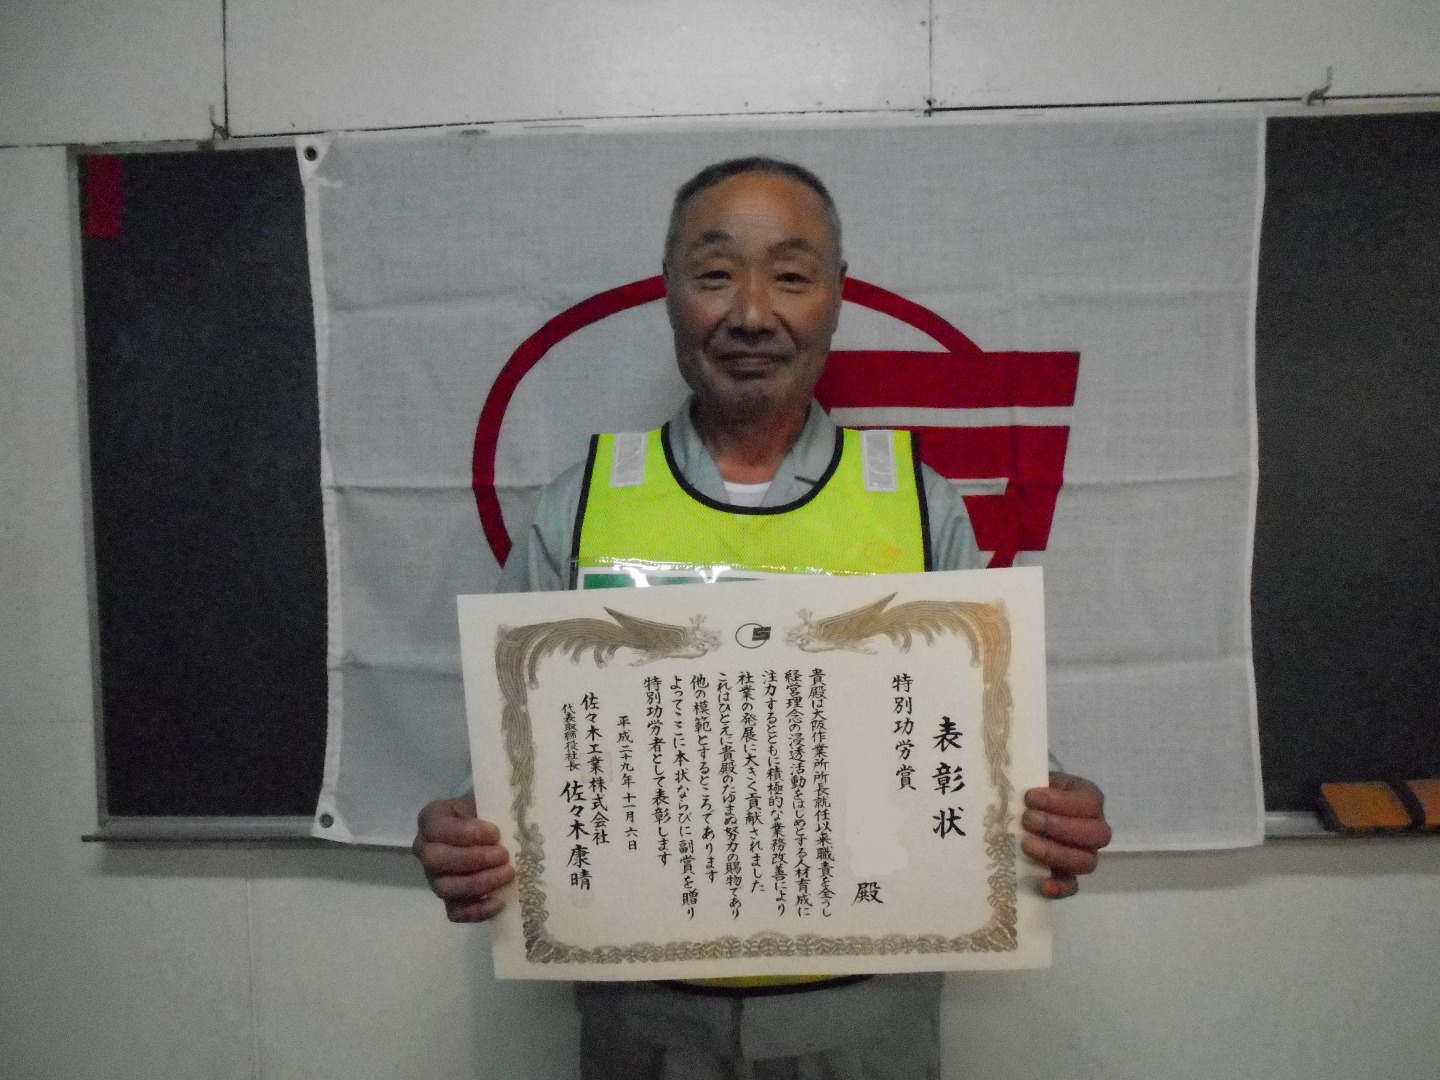 表彰状
特別功労賞
殿
貴殿は大阪作業所所長就任以来職責を全うし
経営理念の浸透活動をはじめとする人材育成に
注力するとともに積極的な業務改善により
社業の発展に大きく貢献されました
これはひとえに貴殿のたゆまぬ努力の賜物であり
他の模範とするところであります
よってここに本状ならびに副賞を贈り
特別功労者として表彰します
平成二十九年十一月六日
佐々木工業株式会社
代表取締役社長 佐々木康晴